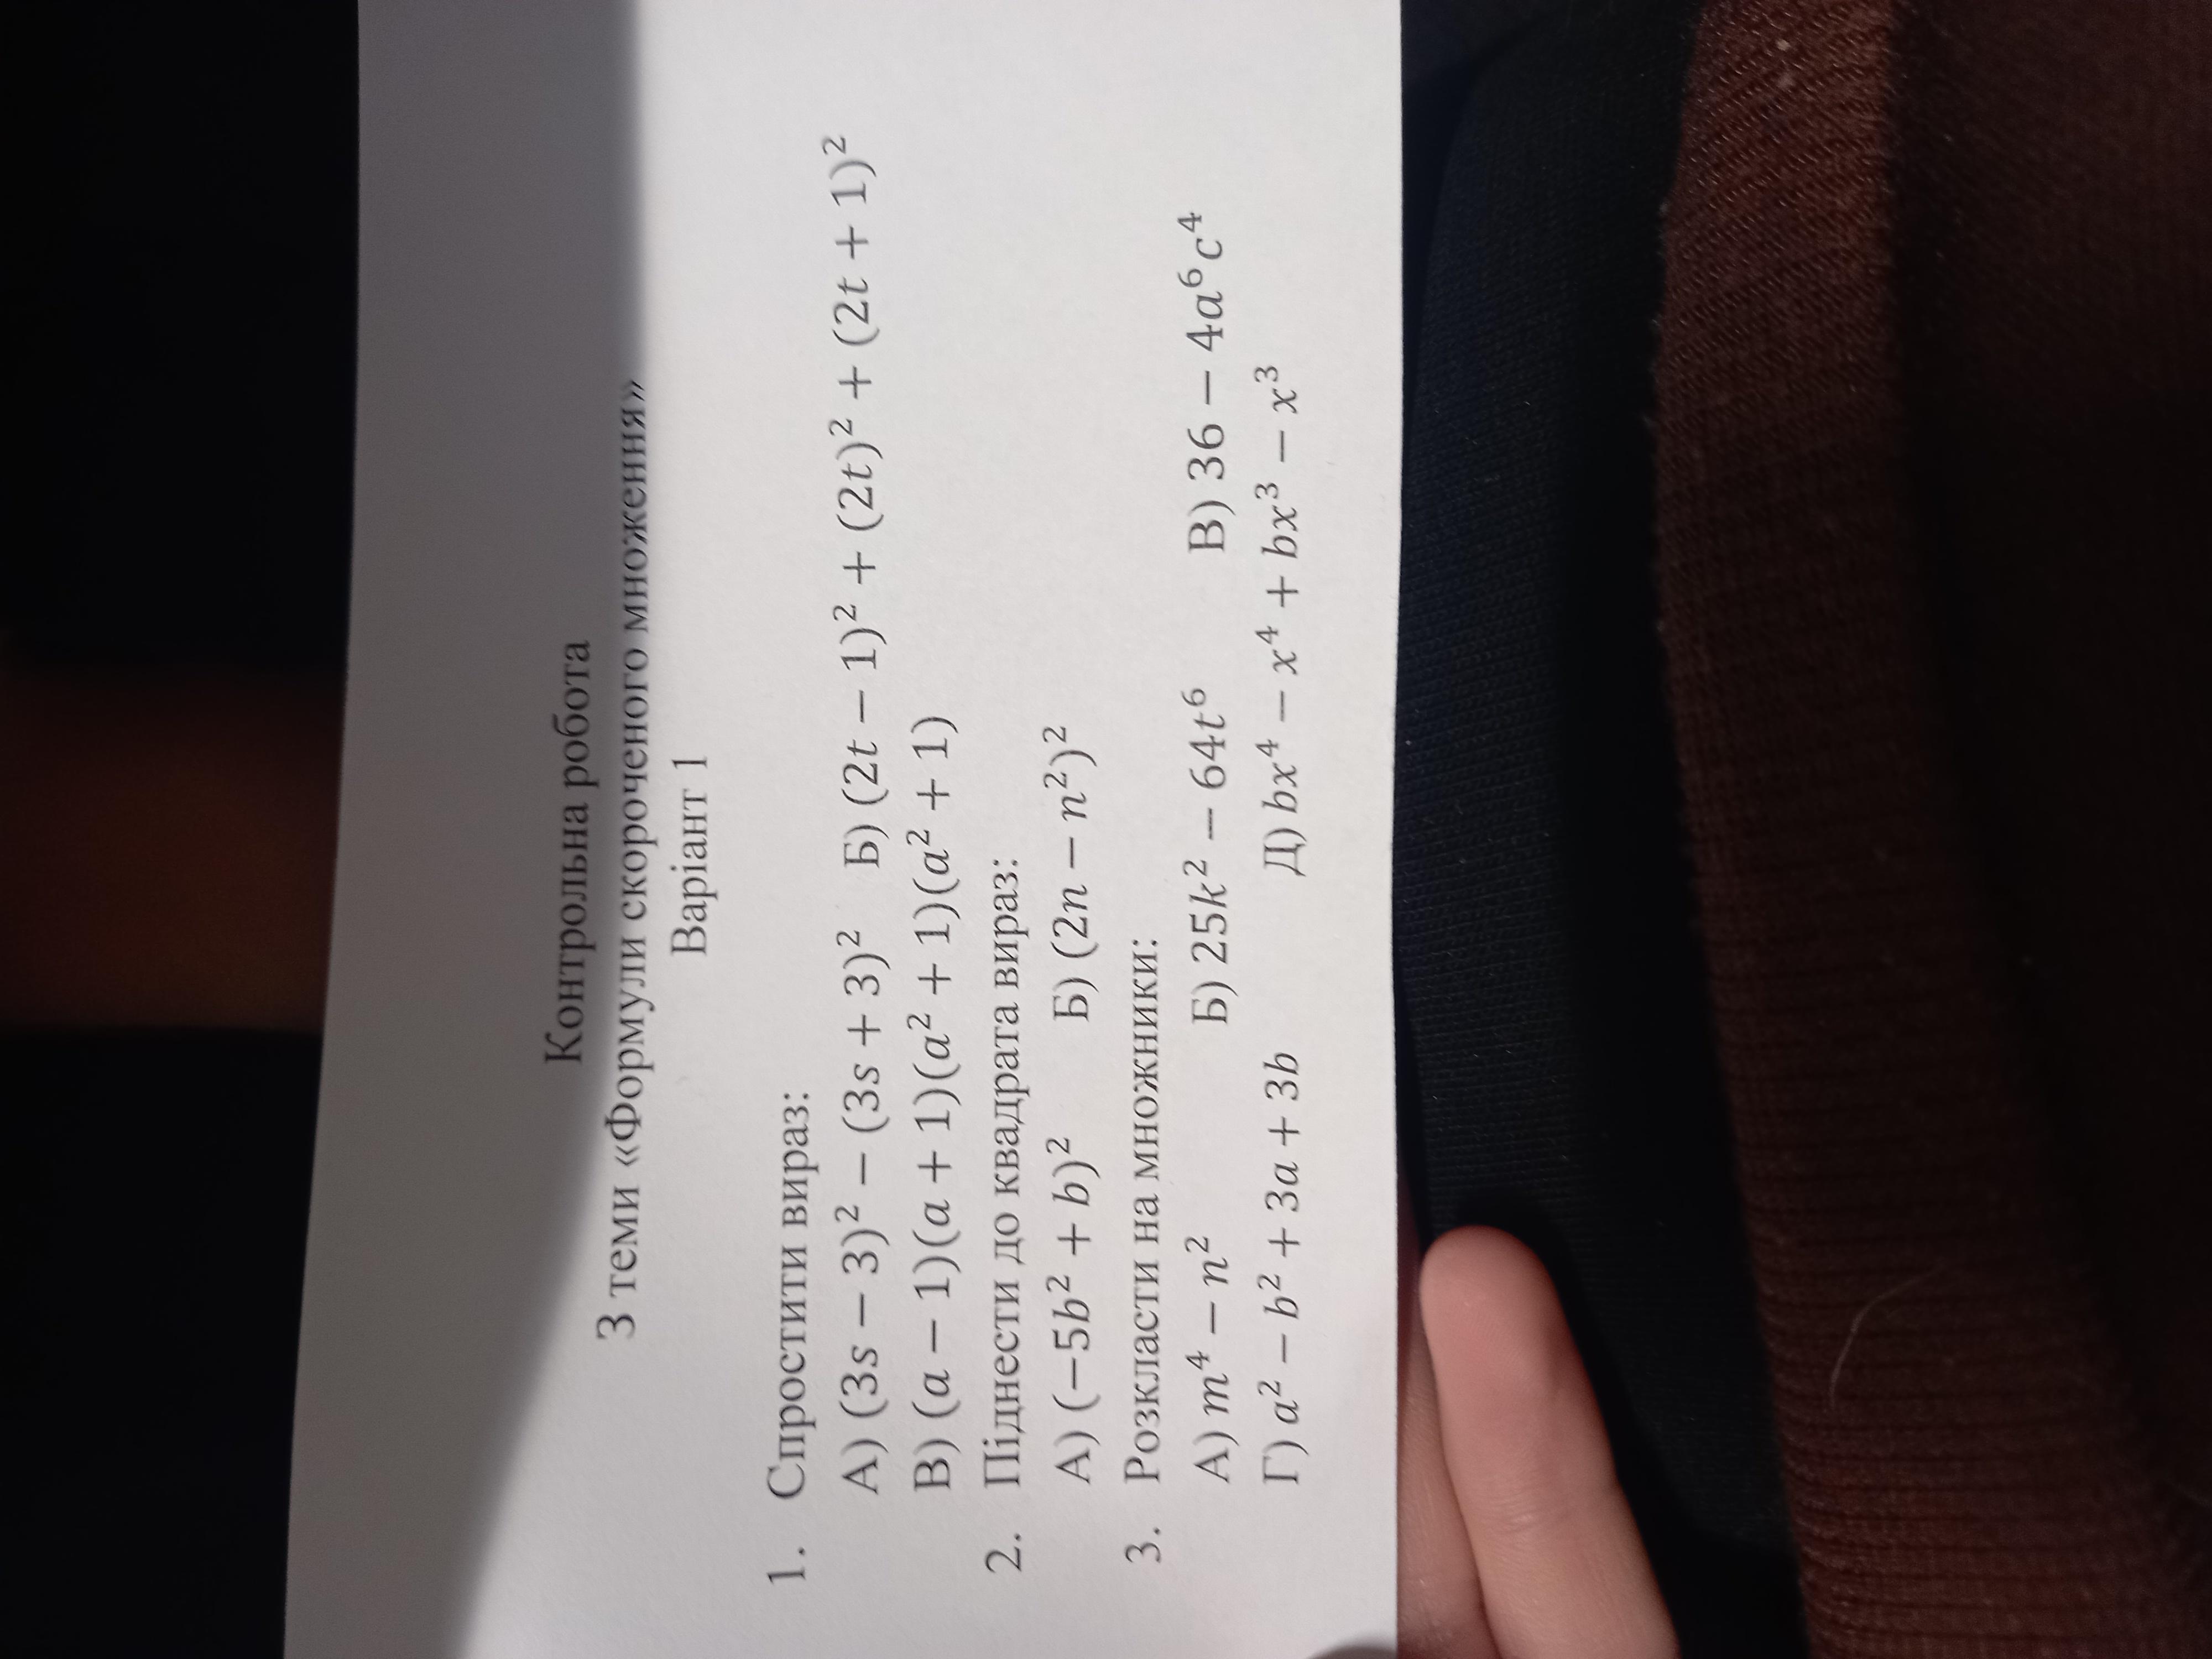 Контрольна робота
З теми «Формули скороченого множення»
Варіант 1
1. Спростити вираз:
А) (3s − 3)² − (3s + 3)² Б) (2t − 1)² + (2t)² + (2t + 1)²
В) (a − 1)(a + 1)(a² + 1)(a² + 1)
2. Піднести до квадрата вираз:
А) (−5b² + b)² Б) (2n − n²)²
3. Розкласти на множники:
А) m⁴ − n² Б) 25k² − 64t⁶ В) 36 − 4a⁶c⁴
Г) a² − b² + 3a + 3b Д) bx⁴ − x⁴ + bx³ − x³